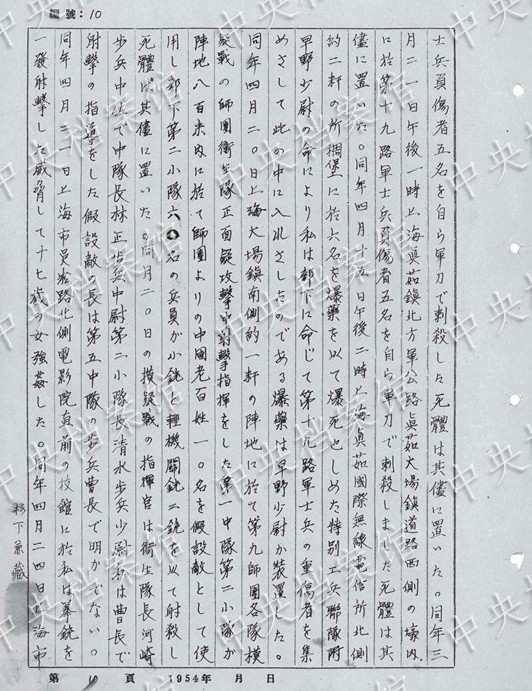 編號:10
士兵負傷者五名を自ら軍刀で刺殺した死體は其儘に置いた。同年三
月二一日午後一時上海真茹鎮北方軍公路真茹大場鎮道路西側の壕内
に於て第十九路軍士兵負傷者五名を自ら軍刀で刺殺しました死體は其
儘に置いた。同年四月十五日午後二時上海真茹國際無線電信所北側
約二粁の所掩堡に於六名を爆藥を以て爆死せしめた特別工兵聯隊附
早野少尉の命により私は部下に命じて第十九路軍士兵の重傷者を集
めさして此の中に入れさしたのである爆藥は早野少尉が裝置した。
同年四月二〇日上海大場鎮南側約一粁の陣地に於て第九師團各隊模
擬戰の師團衛生隊正面擬攻擊中射擊指揮をした第一中隊第二小隊が
陣地八百米内に於て師團よりの中國老百姓一〇名を假設敵として使
用し部下第二小隊六〇名の兵員が小銃と輕機關銃二銃を以て射殺し
死體は其儘に置いた。同月二〇日の模擬戰の指揮官は衛生隊長河崎
步兵中佐で中隊長林正步兵中尉第二小隊長清水步兵少尉 名は曹長で
射擊の指導をした假設敵の長は第五中隊の步兵曹長で明かでない。
同年四月二一日上海市吳淞路北側電影院直前の 於私は拳銃を
一發射擊した威脅して十七歲の女強姦した。同年四月二四日上海市
杉下兼藏
第 10 頁 1954年 月 日
中央档案馆